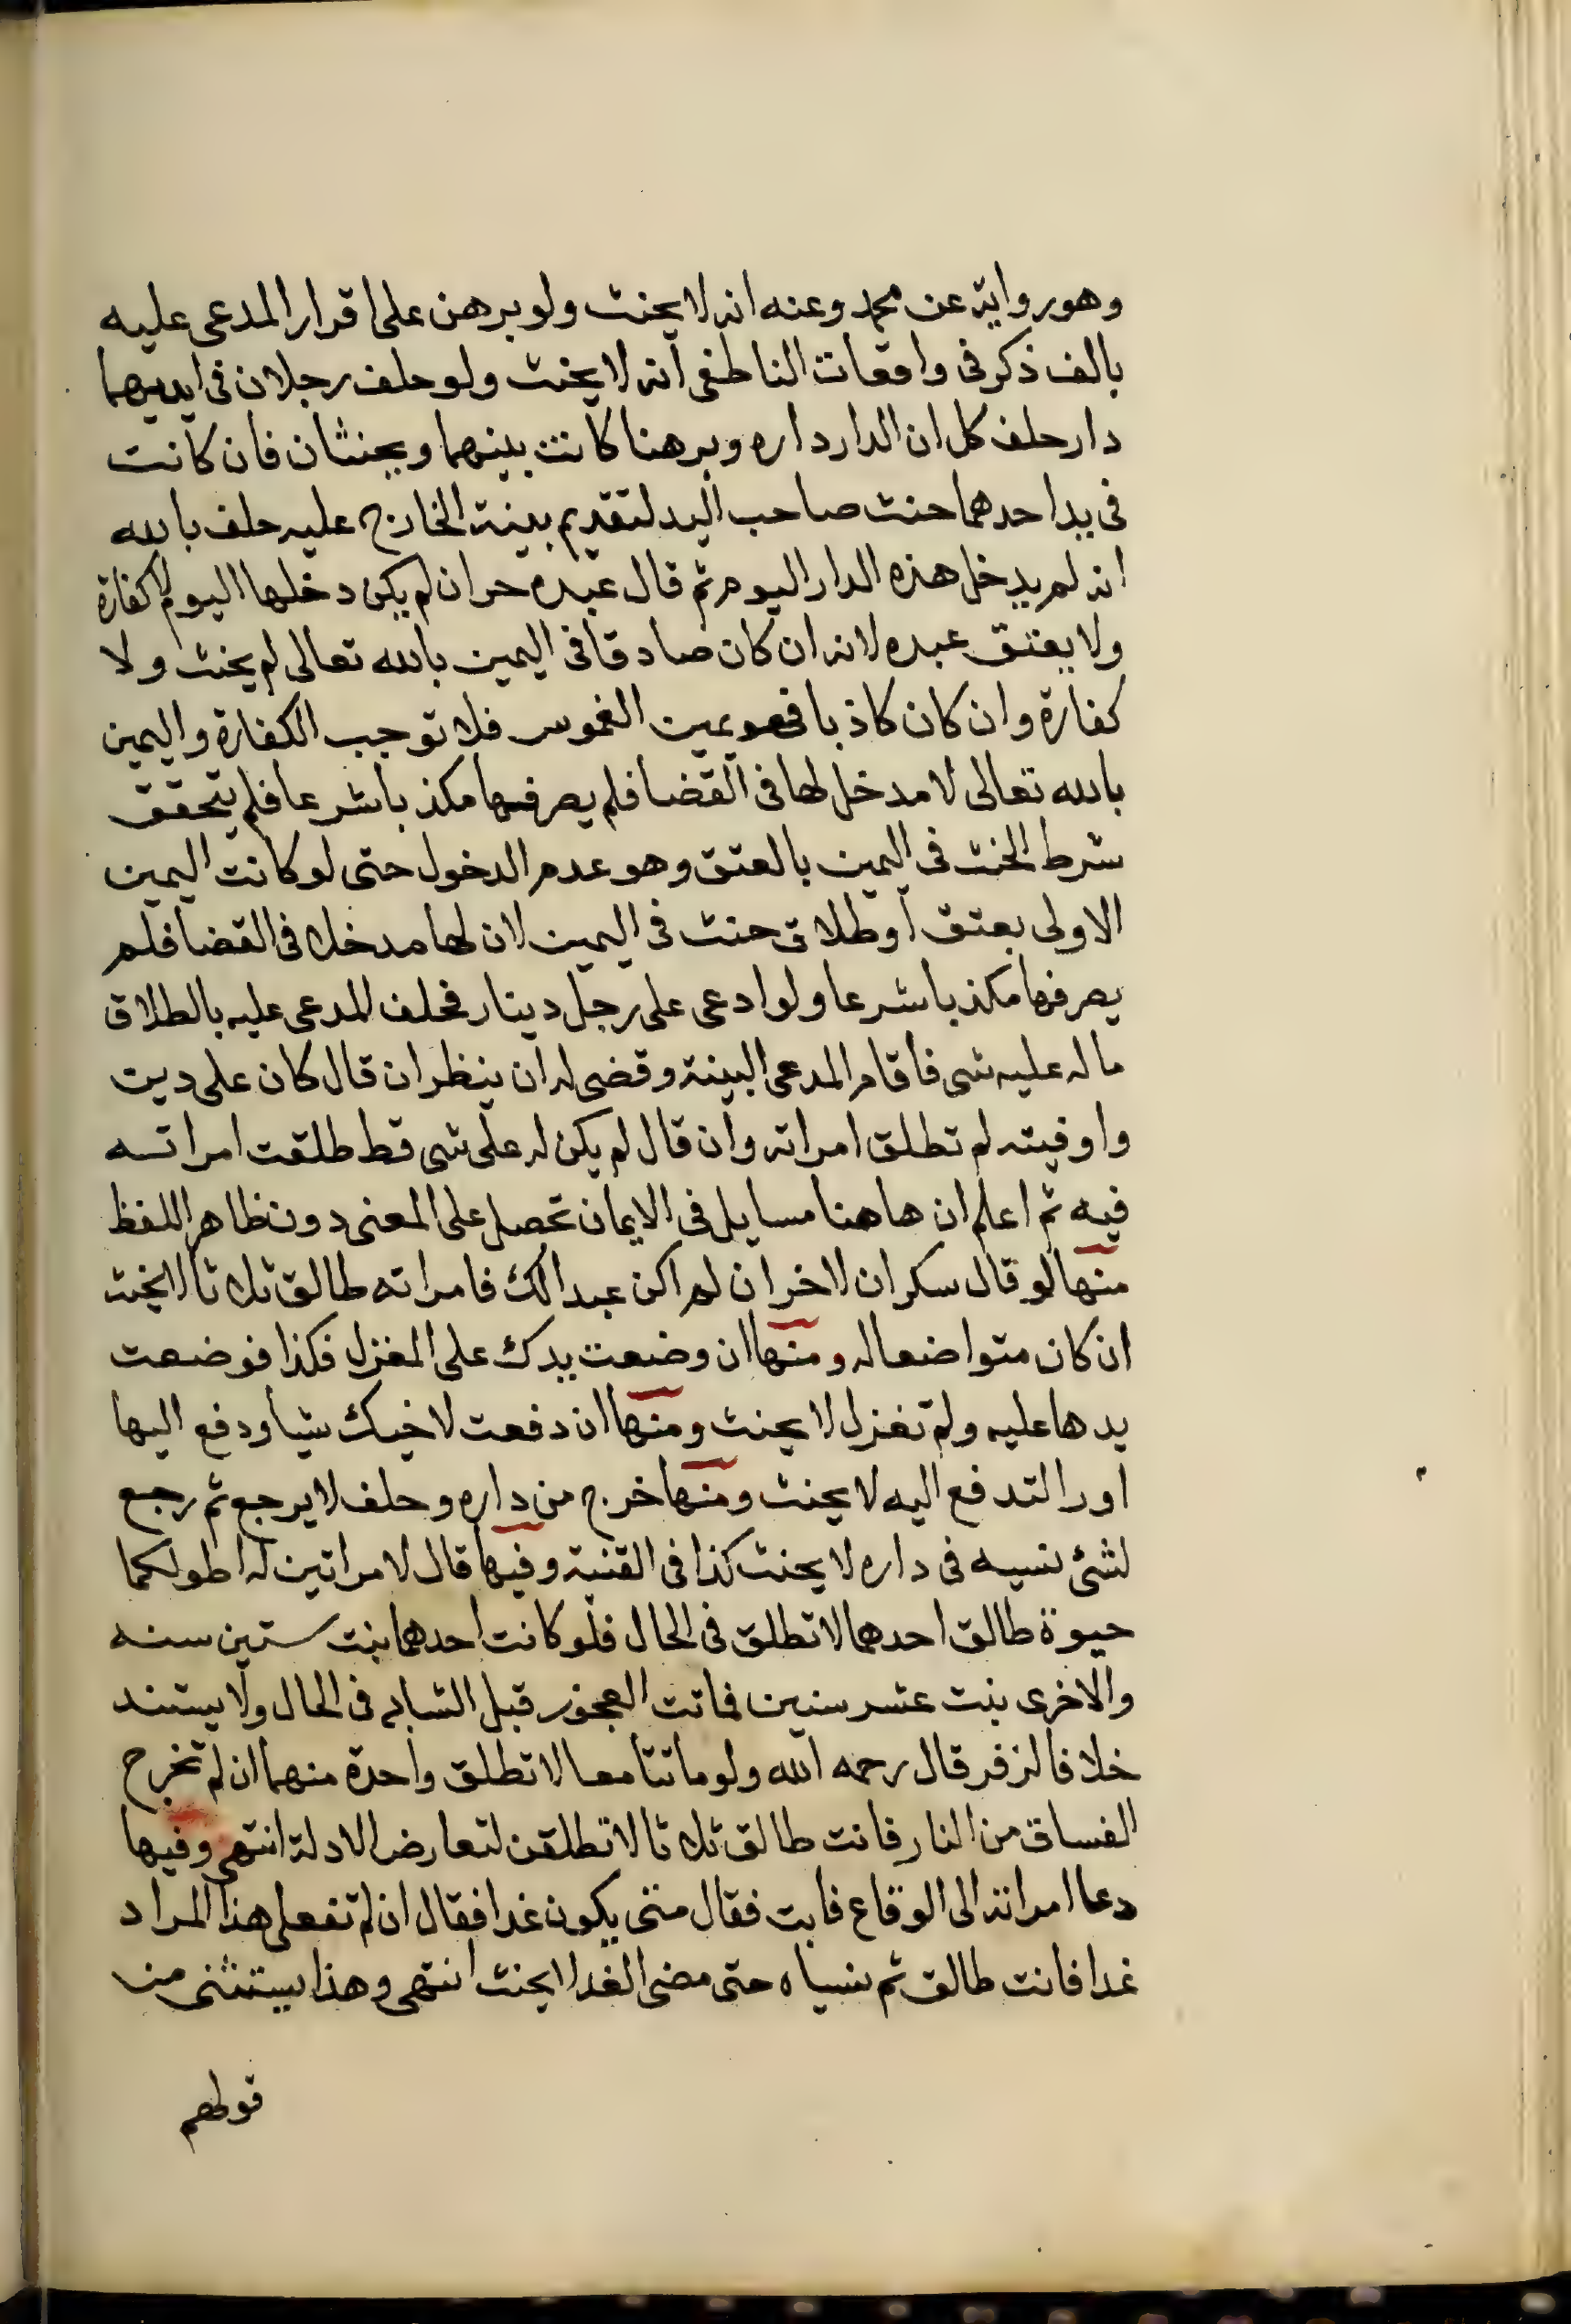 وهو رواية عن محمد وعنه انه لا يحنث ولو برهن على اقرار المدعى عليه
بالف ذكر فى واقعات الناطفى انه لا يحنث ولو حلف رجلان فى ايديهما
دار حلف كل ان الدار داره وبرهنا كانت بينهما ويحنثان فان كانت
فى يد احدهما حنث صاحب اليد لتقديم بينة الخارج عليه حلف بالله
انه لم يدخل هذه الدار اليوم ثم قال عبده حر ان لم يكن دخلها اليوم لا كفارة
ولا يعتق عبده لانه ان كان صادقا فى اليمين بالله تعالى لم يحنث ولا
كفارة وان كان كاذبا فهو يمين الغموس فلا توجب الكفارة واليمين
بالله تعالى لا مدخل لها فى القضا فلم يصر فيها مكذبا شرعا فلم يتحقق
شرط الحنث فى اليمين بالعتق وهو عدم الدخول حتى لو كانت اليمين
الاولى بعتق او طلاق حنث فى اليمين لان لهما مدخلا فى القضا فلم
يصر فيها مكذبا شرعا ولو ادعى على رجل دينار فحلف المدعى عليه بالطلاق
ما له عليه شى فاقام المدعى البينة وقضى له ان ينظر ان قال كان على دين
واوفيته لم تطلق امراته وان قال لم يكن له على شى قط طلقت امراته
فيه ثم اعلم ان هاهنا مسايل فى الايمان تحصل على المعنى دون ظاهر اللفظ
منها لو قال سكران لاخر ان لم اكن عبدا لك فامراته طالق ثلاثا لا يحنث
ان كان متواضعا له ومنها ان وضعت يدك على المغزل فكذا فوضعت
يدها عليه ولم تغزل لا يحنث ومنها ان دفعت لاخيك شيا ودفع اليها
اورا لتدفع اليه لا يحنث ومنها خرج من داره وحلف لا يرجع ثم رجع
لشئ نسيه فى داره لا يحنث كذا فى القنية وفيها قال لامراتين له اطولكما
حيوة طالق احدهما لا تطلق فى الحال فلو كانت احدهما بنت ستين سنه
والاخرى بنت عشر سنين فماتت العجوز قبل الشابه فى الحال ولا يستند
خلافا لزفر قال رحمه الله ولو ماتتا معا لا تطلق واحدة منهما ان لم تخرج
الفساق من النار فانت طالق ثلاثا لا تطلقن لتعارض الادلة انتهى وفيها
دعا امراته الى الوقاع فابت فقال متى يكون غدا فقال ان لم تفعلى هذا المراد
غدا فانت طالق ثم نسياه حتى مضى الغد لا يحنث انتهى وهذا يستثنى من
قولهم